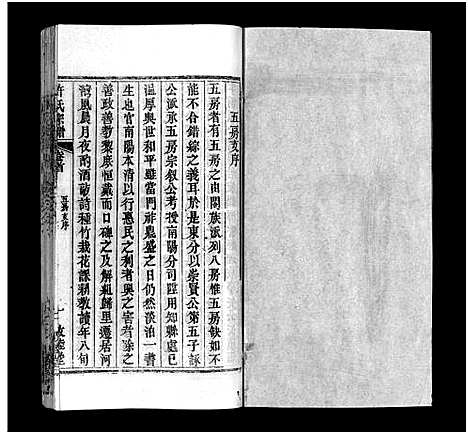 五房支序
五房者有五房之由閤族派列八房惟五房缺如不
能不合錯綜之義耳於是東分以崇賢公第五子詠
公派承五房宗叙公考授南陽分司陞用知縣處已
溫厚與世和平雖當門祚鼎盛之日仍然淡泊一書
生也官南陽本清以行惠民之利者興之害者除之
善政善教黎庶恒戴而口碑之及解組歸里遷居河
清風晨月夜酌酒敲詩種竹栽花課孫教讀年八旬
許氏宗譜
卷首
五房支序
一